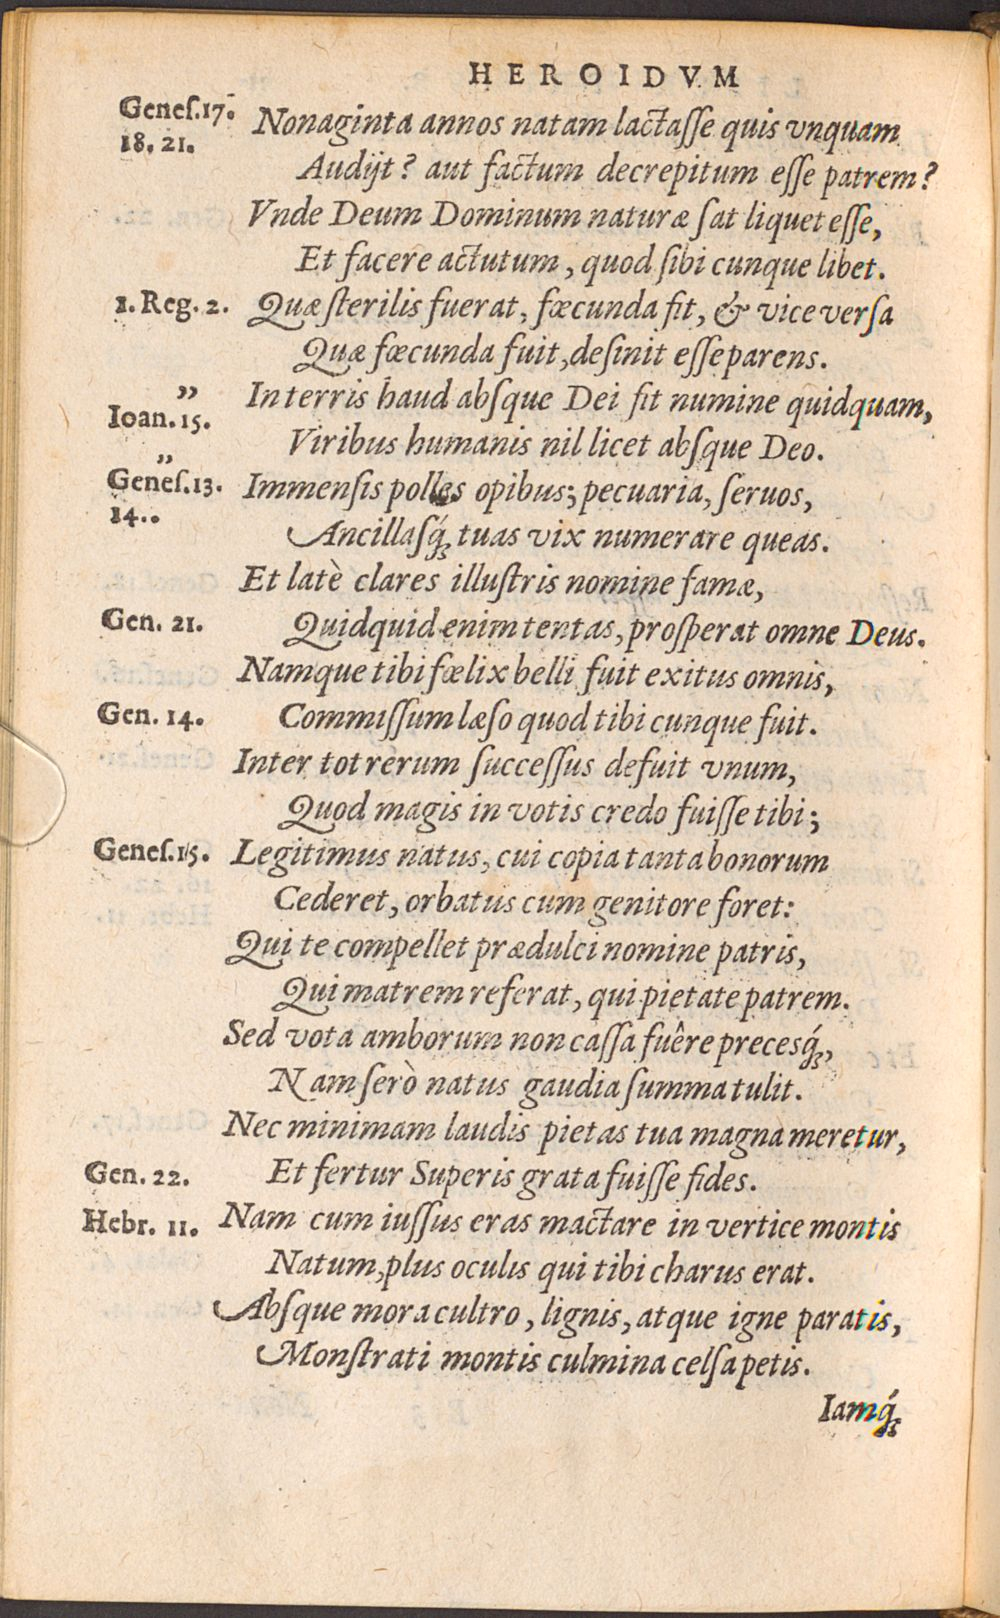 HEROIDVM
Geneſ.17. Nonaginta annos natam lactaſſe quis vnquam
18. 21.
Audijt? aut factum decrepitum eſſe patrem?
Vnde Deum Dominum naturæ ſat liquet eſſe,
Et facere actutum, quod ſibi cunque libet.
1. Reg. 2. Quæ ſterilis fuerat, fœcunda fit, & vice verſa
Quæ fœcunda fuit, deſinit eſſe parens.
„ In terris haud abſque Dei fit numine quidquam,
Ioan. 15.
Viribus humanis nil licet abſque Deo.
„
Geneſ.13. Immenſis polles opibus; pecuaria, ſeruos,
14..
Ancillaſq́; tuas vix numerare queas.
Et latè clares illuſtris nomine famæ,
Gen. 21. Quidquid enim tentas, proſperat omne Deus.
Namque tibi fœlix belli fuit exitus omnis,
Gen. 14. Commiſſum læſo quod tibi cunque fuit.
Inter tot rerum ſucceſſus defuit vnum,
Quod magis in votis credo fuiſſe tibi;
Geneſ.15. Legitimus natus, cui copia tanta bonorum
Cederet, orbatus cum genitore foret:
Qui te compellet prædulci nomine patris,
Qui matrem referat, qui pietate patrem.
Sed vota amborum non caſſa fuêre precesq́;,
Nam ſerò natus gaudia ſumma tulit.
Nec minimam laudis pietas tua magna meretur,
Gen. 22. Et fertur Superis grata fuiſſe fides.
Hebr. 11. Nam cum iuſſus eras mactare in vertice montis
Natum, plus oculis qui tibi charus erat.
Abſque mora cultro, lignis, atque igne paratis,
Monſtrati montis culmina celſa petis.
Iamq́;